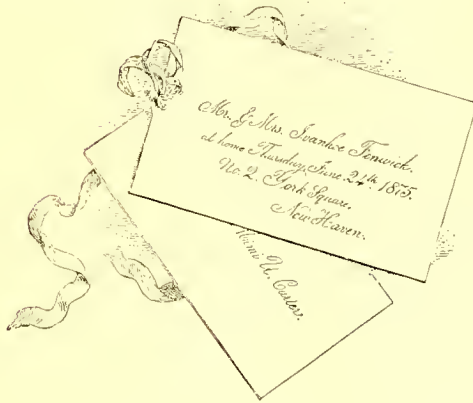 Mr. & Mrs. Ivanhoe Fenwick.
at home Thursday, June 24th 1875.
No. 2. York Square,
New Haven.
U. Carter.